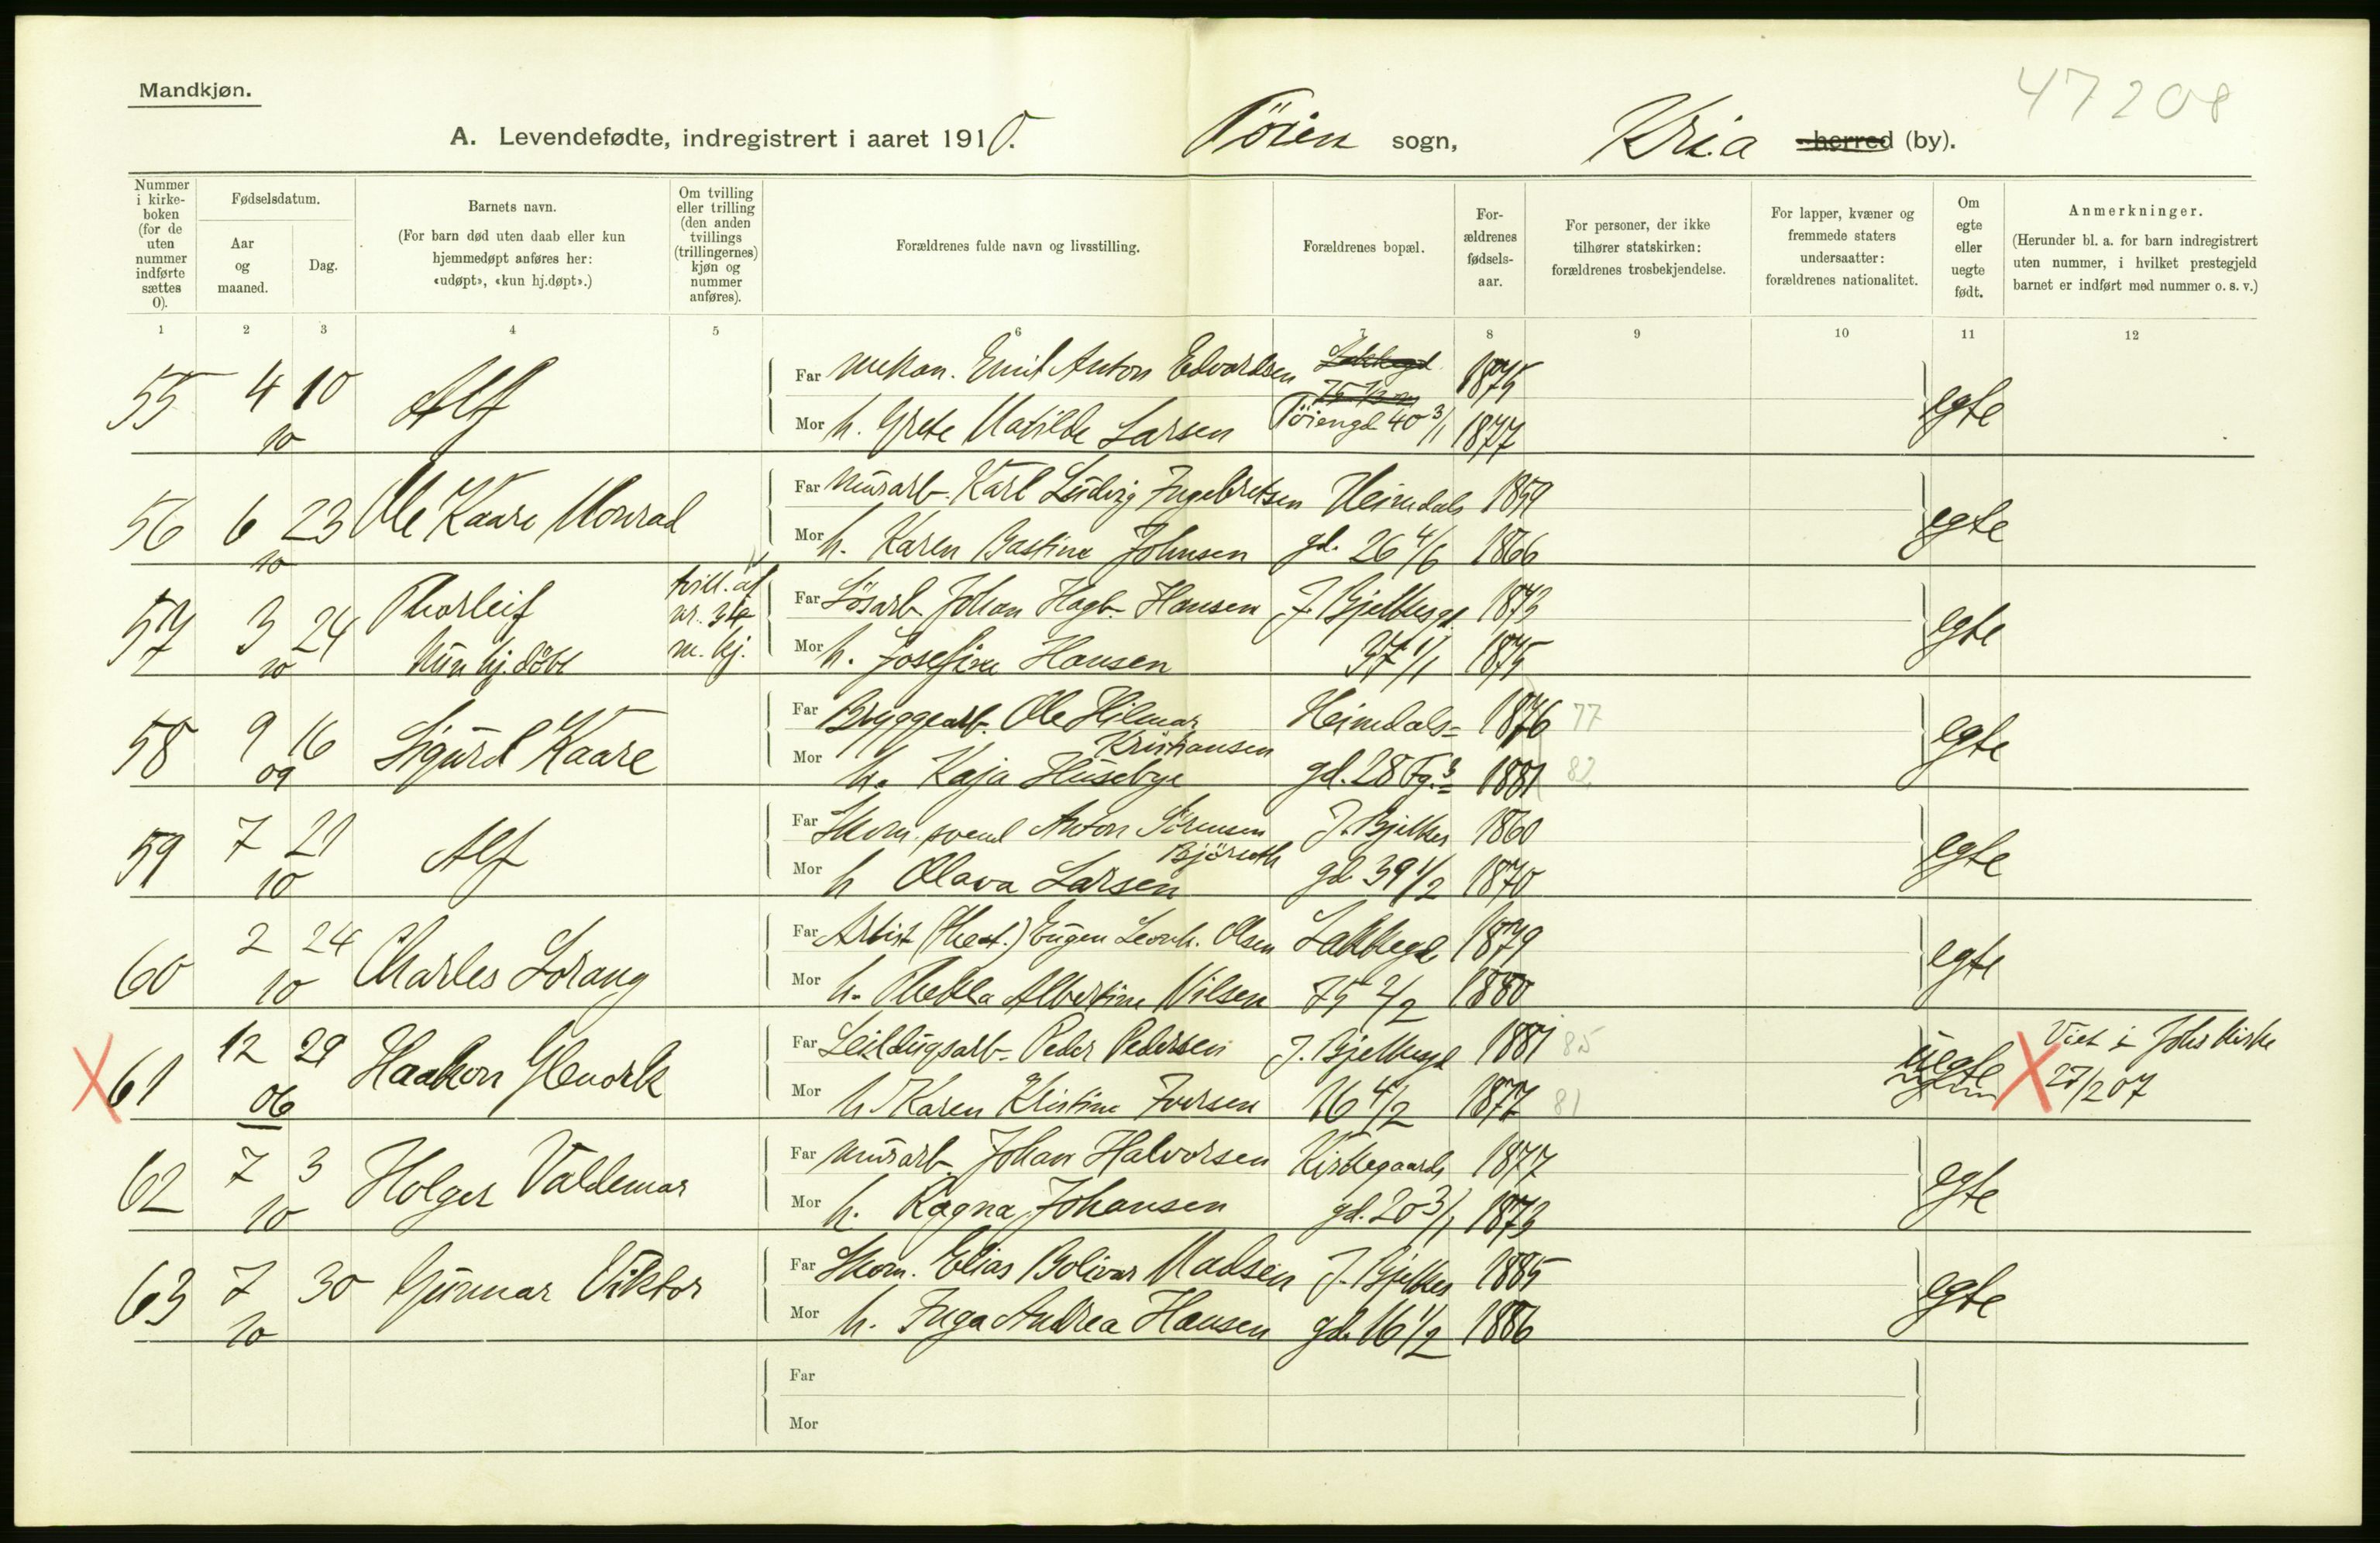 47208
Mandkjøn.
A. Levendefødte, indregistrert i aaret 1910. Töien sogn, Kria herred (by).
Nummer i kirke-boken (for de uten nummer indførte sættes 0).
Fødselsdatum.
Aar og maaned.
Dag.
Barnets navn.
(For barn død uten daab eller kun hjemmedøpt anføres her: «udøpt», «kun hj.døpt».)
Om tvilling eller trilling (den anden tvillings (trillingernes) kjøn og nummer anføres).
Forældrenes fulde navn og livsstilling.
Forældrenes bopæl.
For-ældrenes fødsels-aar.
For personer, der ikke tilhører statskirken: forældrenes trosbekjendelse.
For lapper, kvæner og fremmede staters undersaatter: forældrenes nationalitet.
Om egte eller uegte født.
Anmerkninger.
(Herunder bl. a. for barn indregistrert uten nummer, i hvilket prestegjeld barnet er indført med nummer o. s. v.)
1 2 3 4 5 6 7 8 9 10 11 12
55 4/10 10 Alf
Far Mekan. Emil Anton Edvardsen 1875
Mor h. Grete Matilde Larsen Töiengd 40 3/1 1877 egte
56 6/10 23 Ole Kaare Monrad
Far Murarb. Karl Ludvig Ingebretsen Heimdals 1859
Mor h. Karen Bastine Johnsen gd. 26 4/6 1866 egte
57 3/10 24 Thorleif Kun hj. døbt tvill. af nr. m. kj.
Far Løsarb. Johan Hagb. Hansen J. Bjelkesgd. 1873
Mor h. Josefine Hansen 37 1/1 1875 egte
58 9/09 16 Sigurd Kaare
Far Bryggearb. Ole Hilmar Kristiansen Heimdals= 1876 77
Mor h. Kaja Husebye gd. 28 Fg. 3 1881 82 egte
59 7/10 21 Alf
Far Skom. svend Anton Sörensen Björseth J. Bjelkes 1860
Mor h Olava Larsen gd 39 1/2 1870 egte
60 2/10 24 Charles Lorang
Far Artist (Theat.) Eugen Leonh. Olsen Lakkegd 1879
Mor h. Thekla Albertine Nilsen 75 2/2 1880 egte
X 61 12/06 29 Haakon Glenork
Far Leildugsarb. Peder Pedersen J. Bjelkesgd 1881 85
Mor h Karen Kristine Iversen 16 4/2 1877 81 uegte X Viet i Johs kirke 27/2 07
62 7/10 3 Holger Valdemar
Far Murarb. Johan Halvorsen Kirkegaards 1877
Mor h. Ragna Johansen gd. 20 3/1 1873 egte
63 7/10 30 Gunnar Viktor
Far Skom. Elias Bolivar Madsen J. Bjelkes 1885
Mor h. Inga Andrea Hansen gd. 16 1/2 1886 egte
Far
Mor